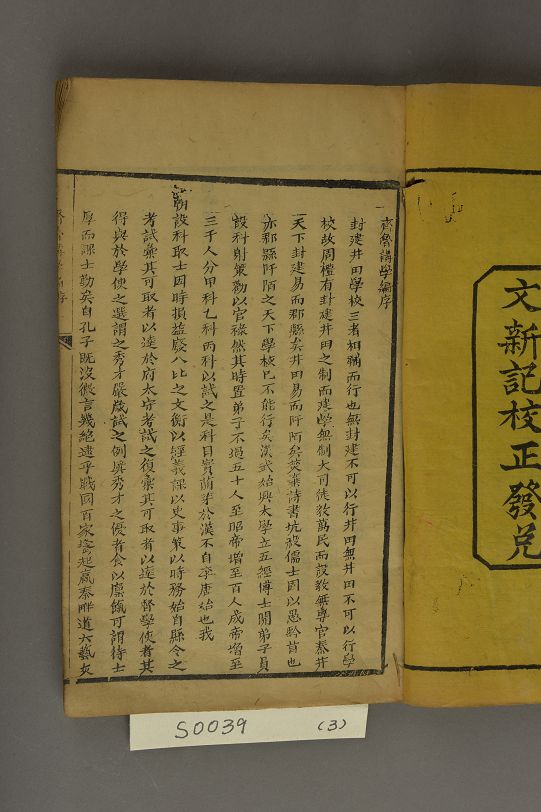 文新記校正發兌
齊魯講學編序
封建井田學校三者相輔而行也無封建不可以行井田無井田不可以行學
校故周禮有封建井田之制而建學無制大司徒敎萬民而設敎無專官秦并
天下封建易而郡縣矣井田易而阡陌矣焚棄詩書坑殺儒士固以愚黔首也
亦郡縣阡陌之天下學校已不能行矣漢武始興太學立五經博士開弟子員
設科射策勸以官祿然其時置弟子不過五十人至昭帝增至百人成帝增至
三千人分甲科乙科丙科以試之是科目實萌芽於漢不自李唐始也我
朝設科取士因時損益廢八比之文衡以經義課以史事策以時務始自縣令之
考試彙其可取者以達於府太守考試之復彙其可取者以達於督學使者其
得與於學使之選謂之秀才嚴歲試之例舉秀才之優者食以廩餼可謂待士
厚而課士勤矣自孔子既沒微言幾絕遭乎戰國百家竝起嬴秦畔道六藝灰
序
S0039 (3)